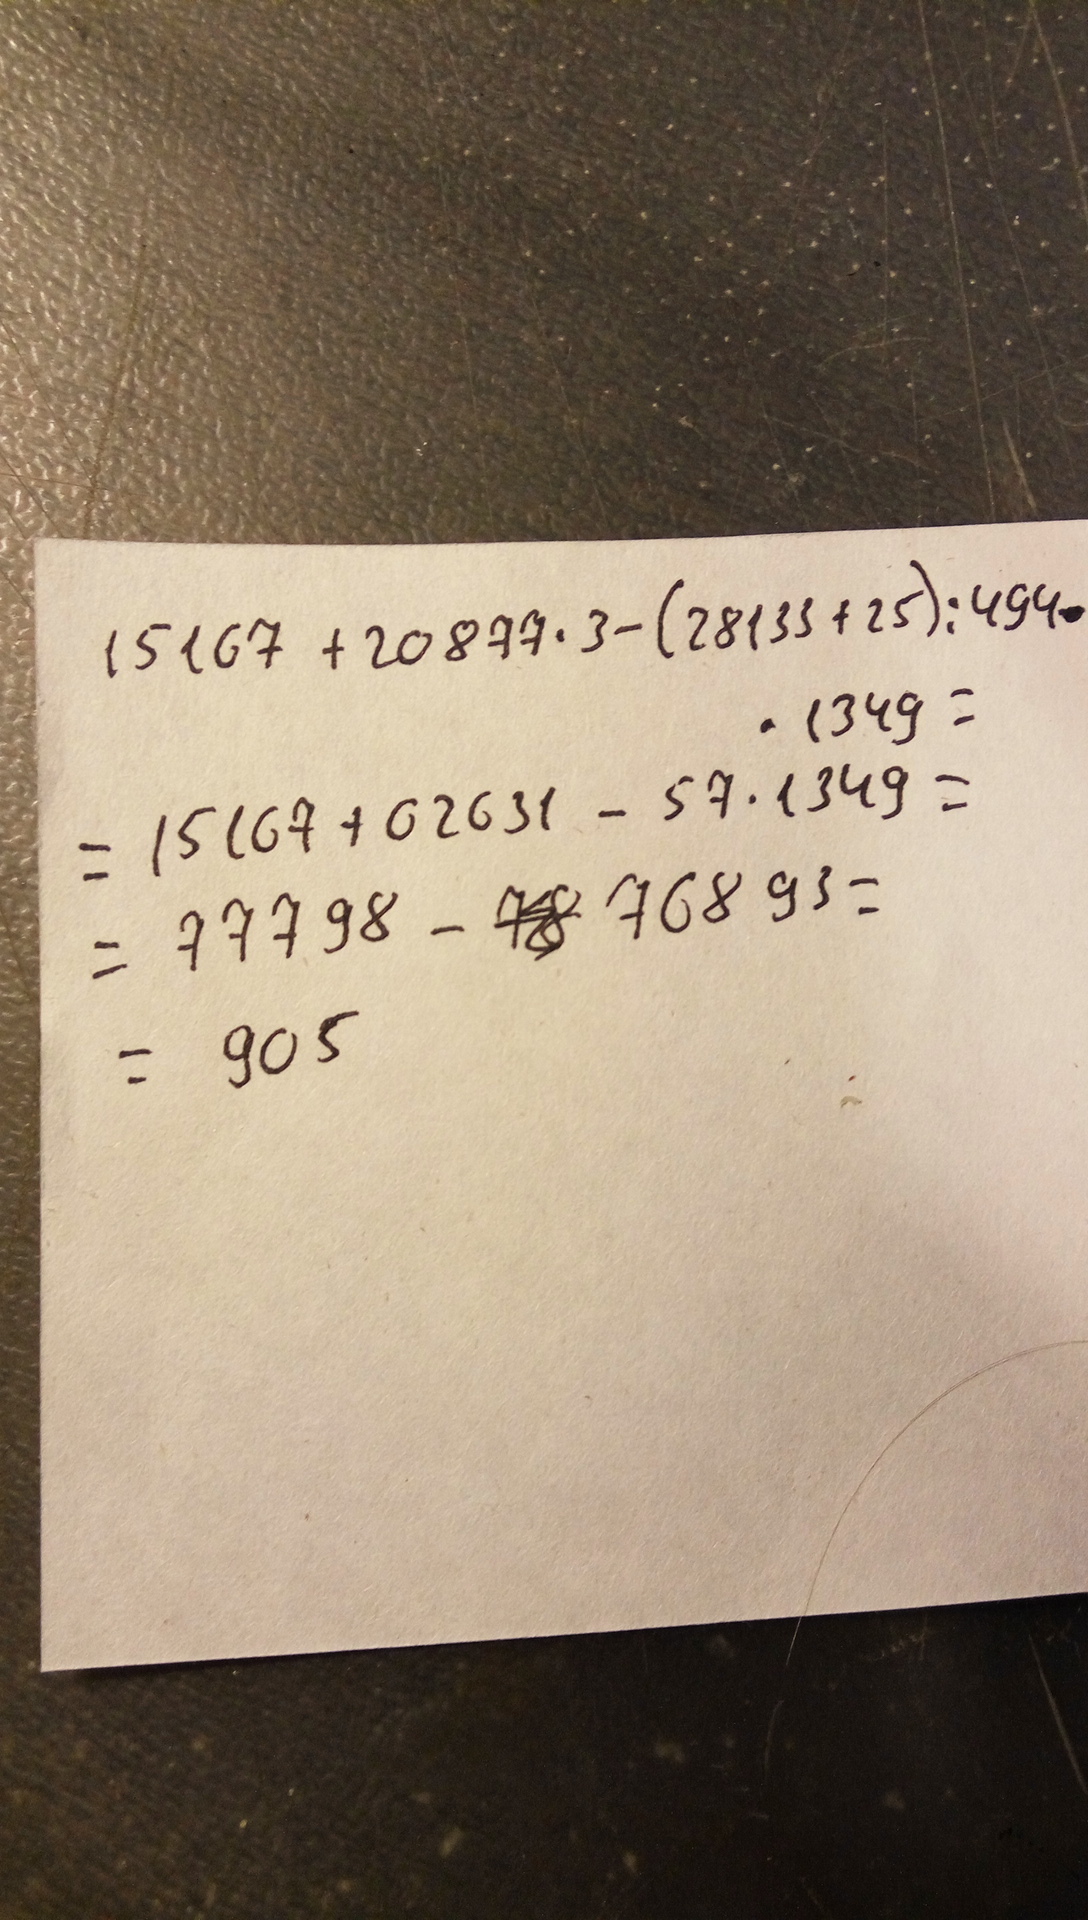 15167 +20877·3-(28133+25):494·
·1349=
=15167+62631 - 57·1349=
=77798 - 76893=
= 905